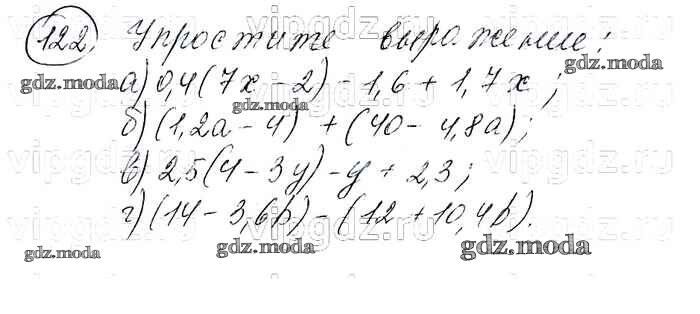 122. Упростите выражение:
а) 0,4(7x - 2) - 1,6 + 1,7x;
б) (1,2a - 4) + (40 - 4,8a);
в) 2,5(4 - 3y) - y + 2,3;
г) (14 - 3,6b) - (12 + 10,4b).
gdz.moda
gdz.moda
gdz.moda
gdz.moda
gdz.moda
gdz.moda
gdz.moda
vipgdz.com
vipgdz.com
vipgdz.com